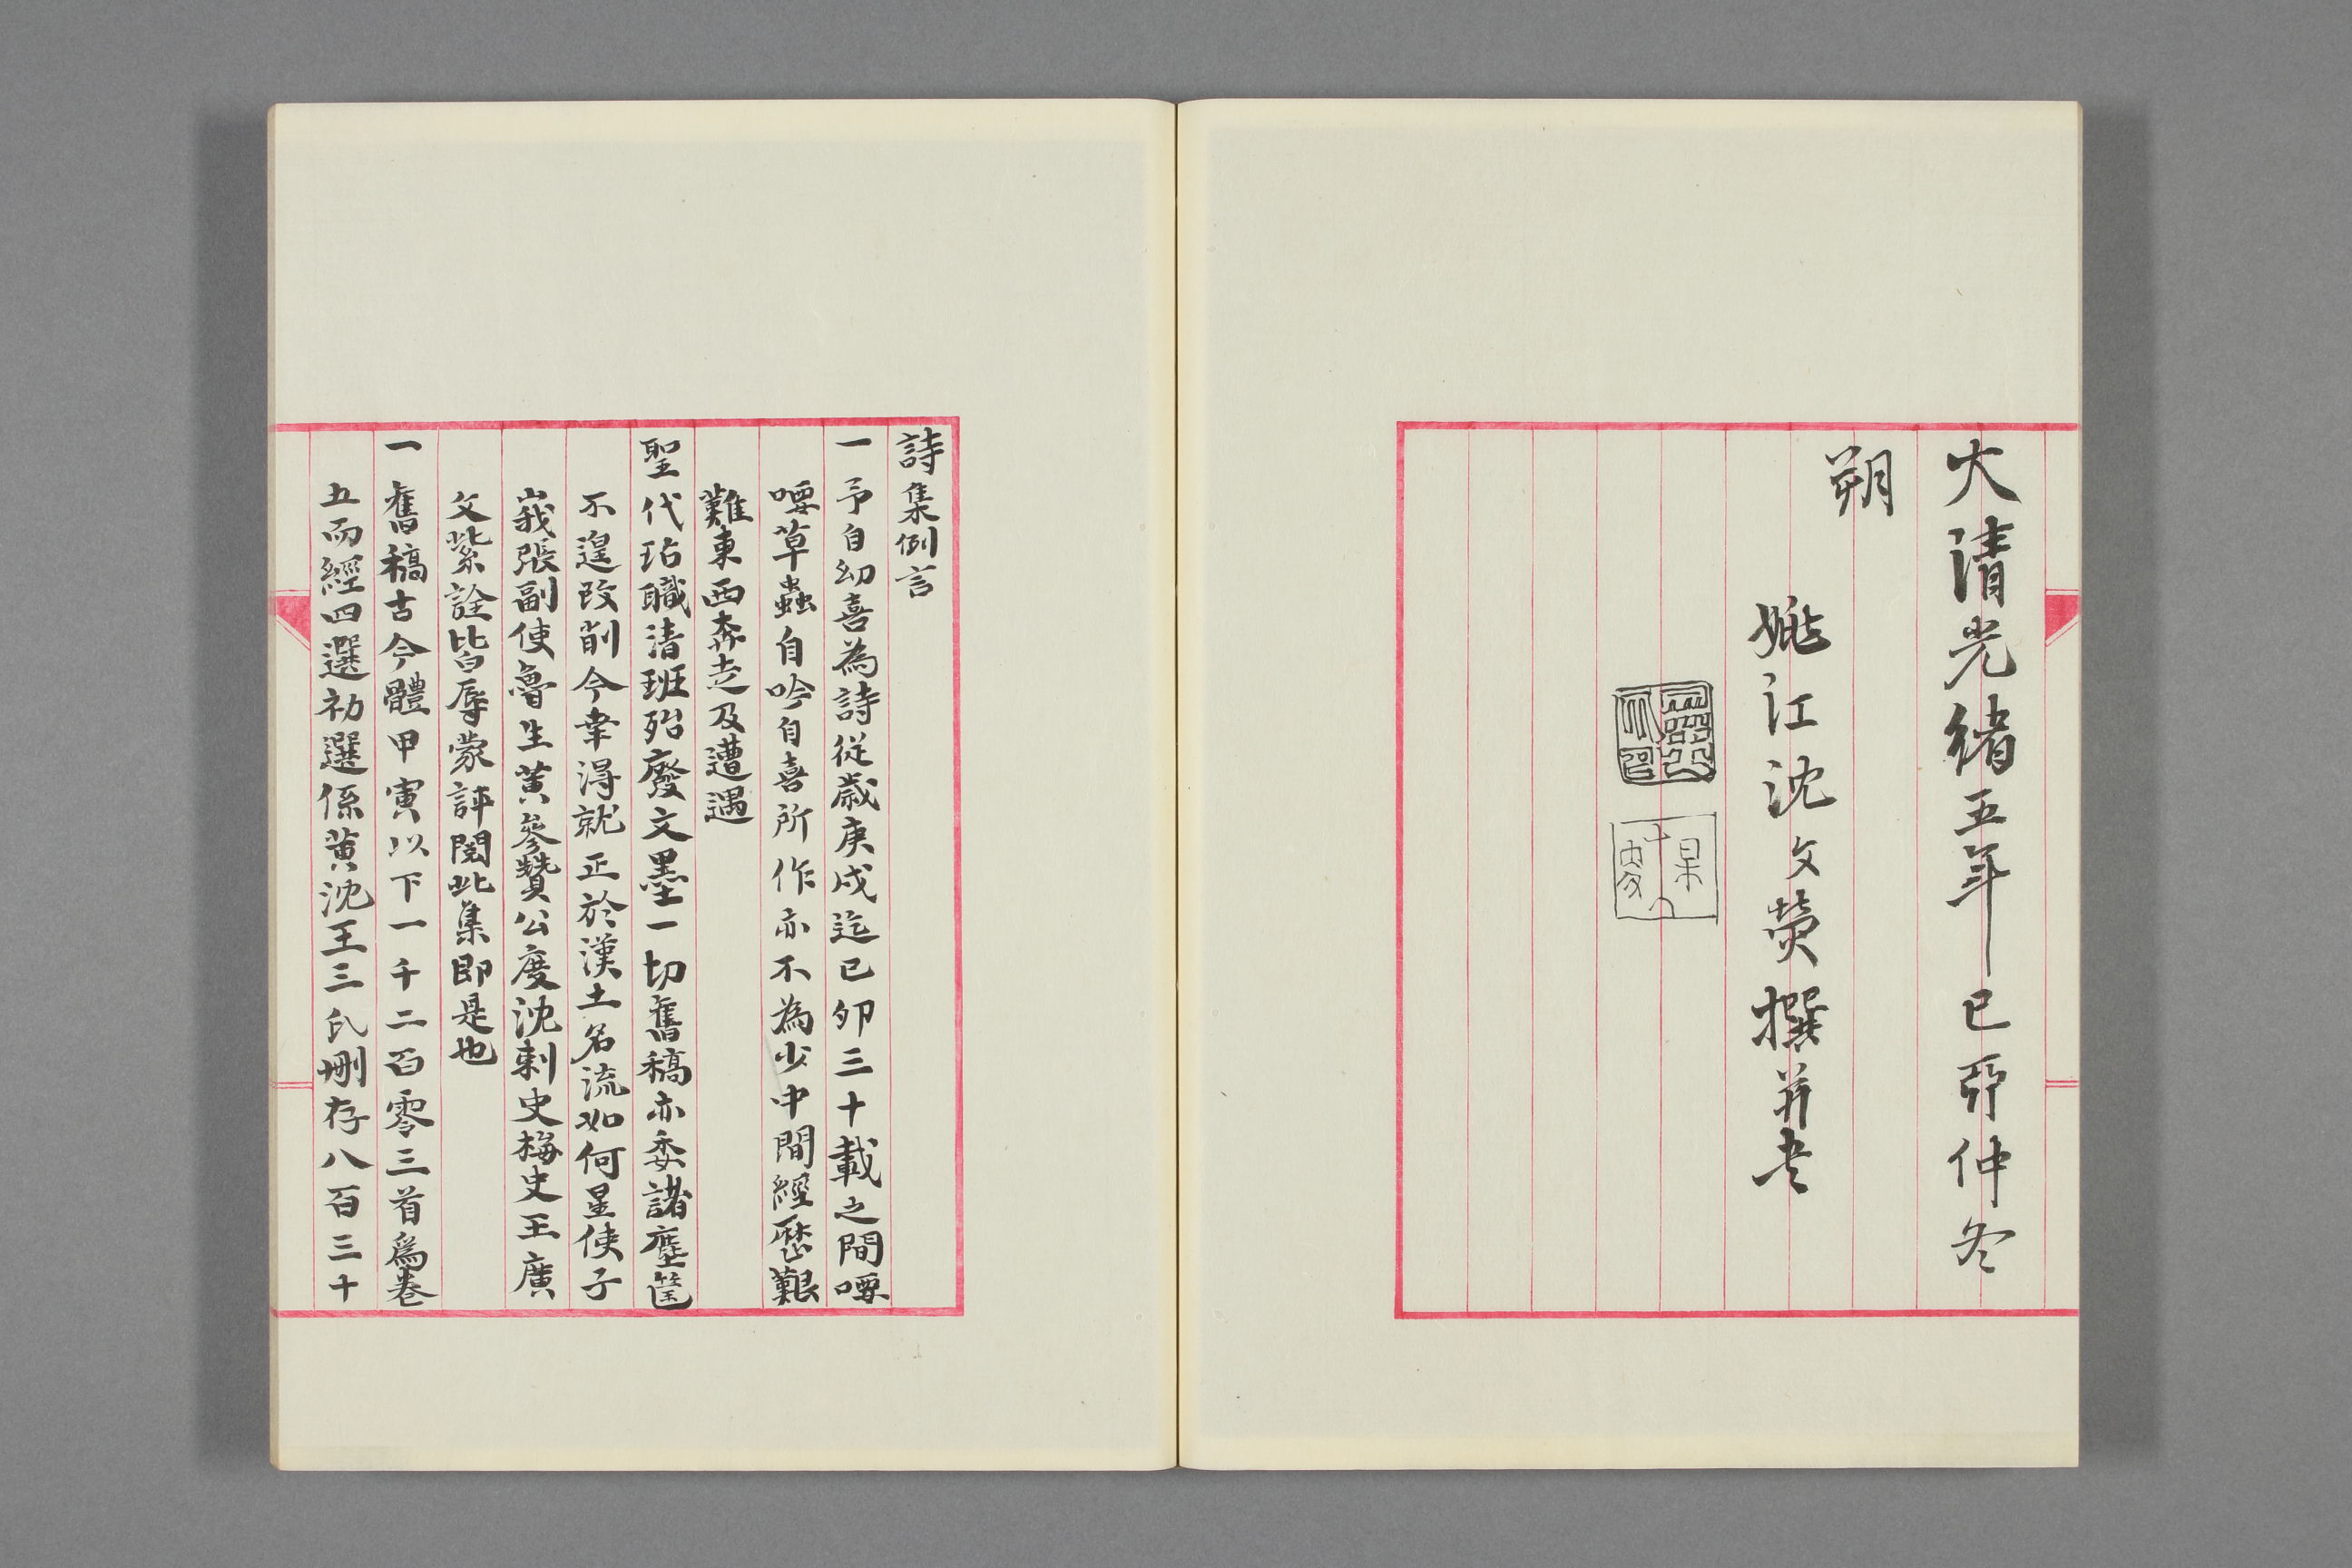 大清光緒五年己卯仲冬
朔
姚江沈文熒撰并書
詩集例言
一予自幼喜為詩從歳庚戌迄己卯三十載之間喓
喓草蟲自吟自喜所作亦不為少中間經歷艱
難東西奔走及遭遇
聖代玷職清班殆廢文墨一切舊稿亦委諸塵筐
不遑改削今幸淂就正於漢土名流如何星使子
峩張副使魯生黄參贊公度沈刺史梅史王廣
文紫詮皆辱蒙評閱此集即是也
一舊稿古今體甲寅以下一千二百零三首爲卷
五而經四選初選係黄沈王三氏刪存八百三十